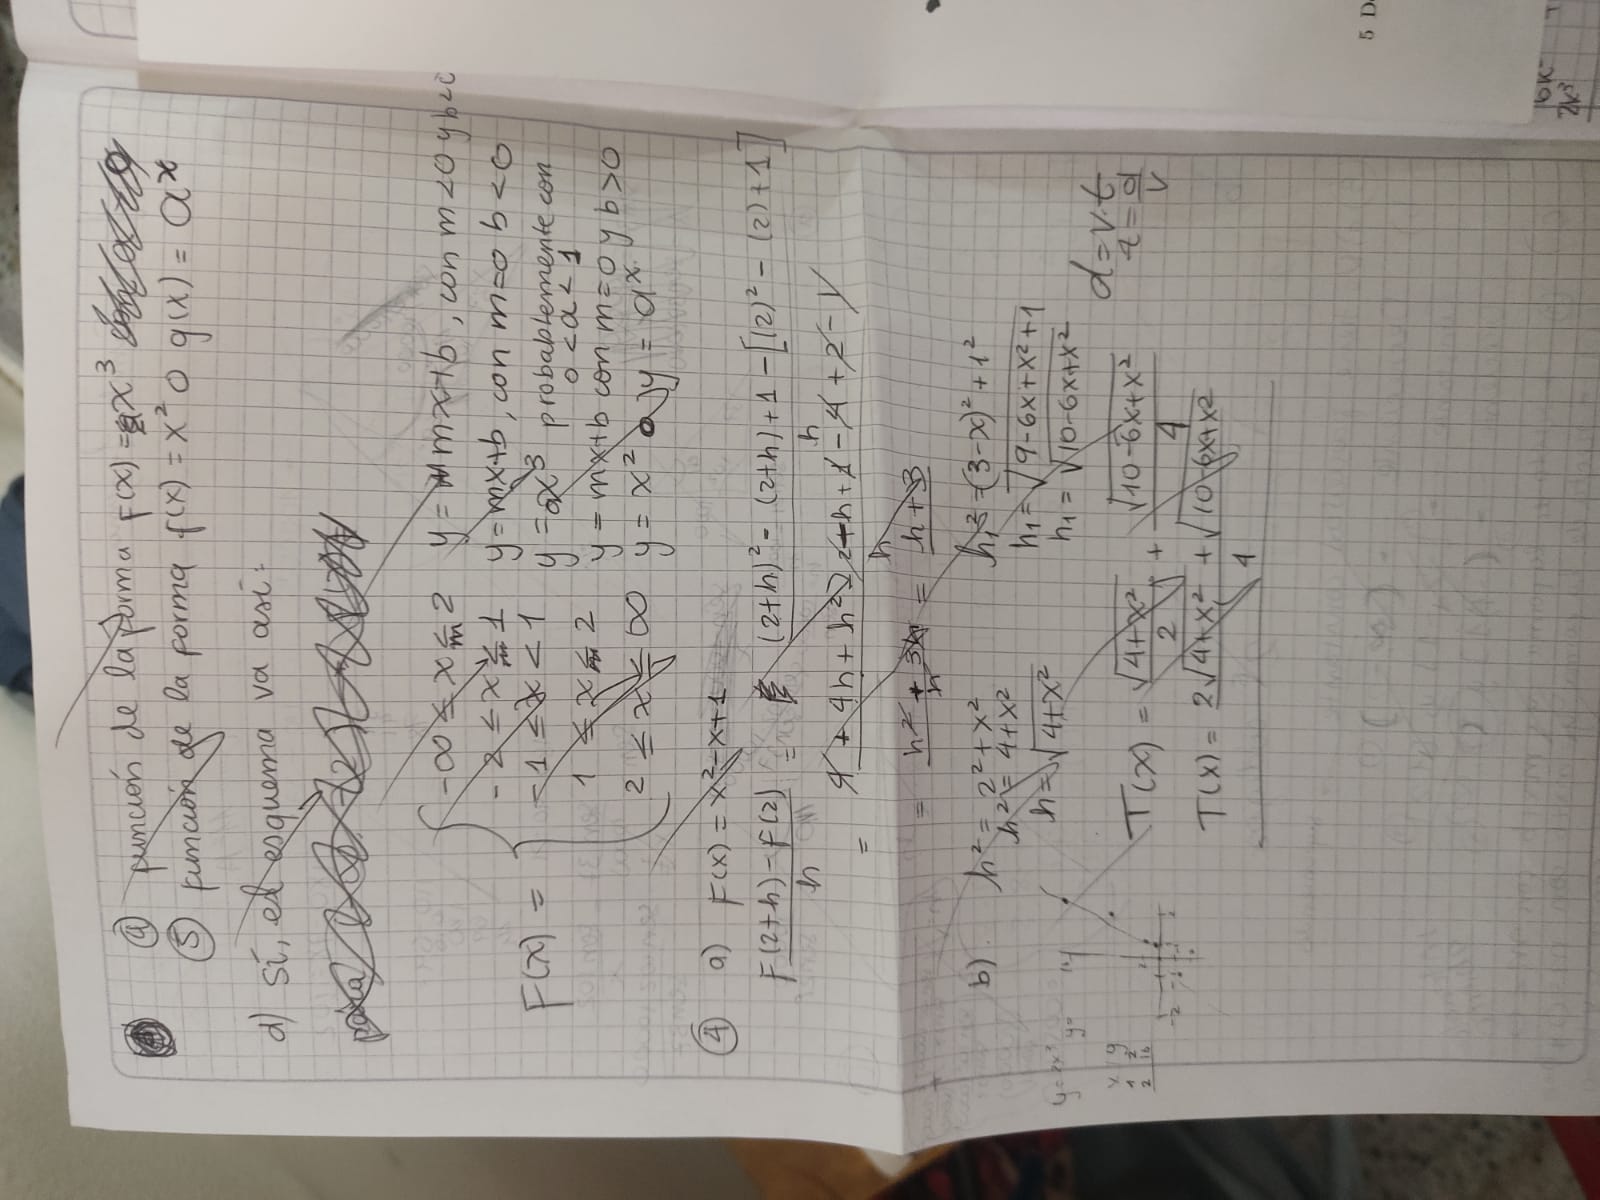 ④ función de la forma F(x) = ax³
⑤ función de la forma f(x) = x² o g(x) = aˣ
d) Sí, el esquema va así:
F(x) =
-∞ ≤ x ≤ 2 y = mx+b, con m<0 y b<0
-2 ≤ x ≤ 1 y = mx+b, con m=0 b<0
-1 ≤ x < 1 y = ax³ probablemente con 0<a<1
1 ≤ x ≤ 2 y = mx+b con m=0 y b>0
2 ≤ x ≤ ∞ y = x² o y = aˣ
④ a) F(x) = x²-x+1
F(2+h)-f(2) / h = (2+h)² - (2+h)+1 - [(2)² - (2)+1] / h
= 4 + 4h + h² - 2 - h + 1 - 4 + 2 - 1 / h
= h² + 3h / h = h+3
b) h² = 2²+x² h₁² = (3-x)²+1²
h² = 4+x² h₁ = √9-6x+x²+1
h = √4+x² h₁ = √10-6x+x²
d = v·t
t = d/v
T(x) = √4+x² / 2 + √10-6x+x² / 4
T(x) = 2√4+x² + √10-6x+x² / 4
y=
x y
1 2
2 16
-2
5 D
6x